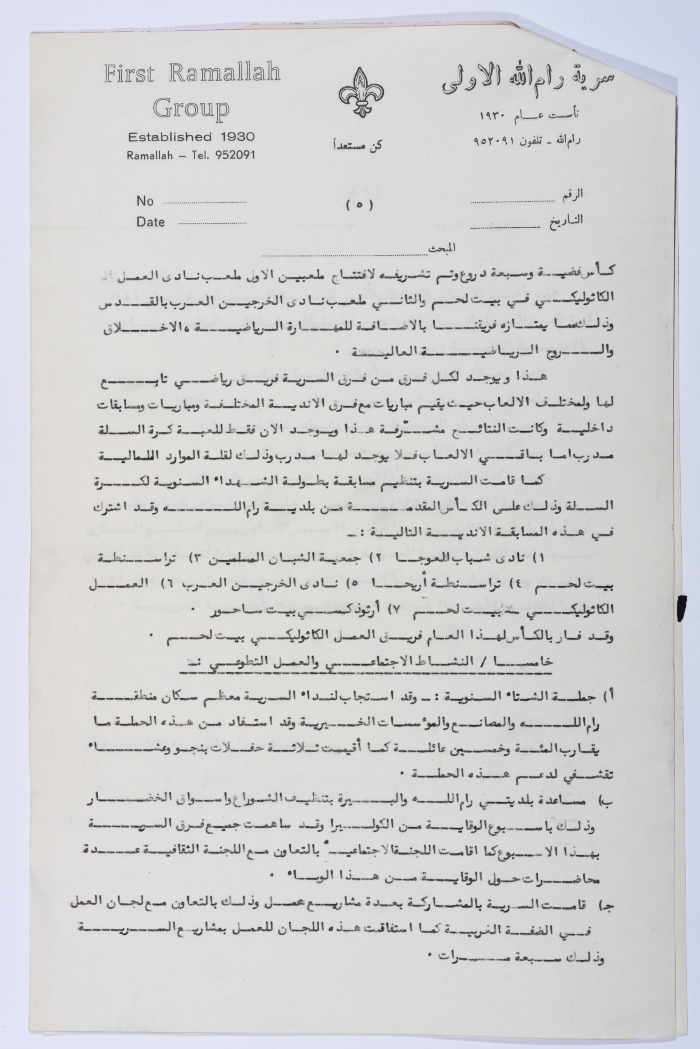 First Ramallah
Group
Established 1930
Ramallah – Tel. 952091
كن مستعداً
سرية رام الله الاولى
تأسست عام ١٩٣٠
رام الله - تلفون ٩٥٢٠٩١
No
Date
( ٥ )
الرقم
التاريخ
المبحث
كأس فضية وسبعة دروع وتم تشريفه لافتتاح ملعبين الاول ملعب نادى العمل
الكاثوليكي في بيت لحم والثاني ملعب نادى الخرجين العرب بالقدس
وذلك مما يمتازه فريقنا بالاضافة للمهارة الرياضية ، الاخلاق
والروح الرياضية العالية .
هذا ويوجد لكل فرق من فرق السرية فريق رياضي تابع
لها ولمختلف الالعاب حيث يقيم مباريات مع فرق الاندية المختلفة ومباريات ومسابقات
داخلية وكانت النتائج مشرفة هذا ويوجد الان فقط للعبة كرة السلة
مدرب اما باقي الالعاب فلا يوجد لها مدرب وذلك لقلة الموارد المالية
كما قامت السرية بتنظيم مسابقة بطولة الشهداء السنوية لكرة
السلة وذلك على الكأس المقدمة من بلدية رام الله وقد اشترك
في هذه المسابقة الاندية التالية : ـ
١) نادى شباب العوجا ٢) جمعية الشبان المسلمين ٣) تراسنطة
بيت لحم ٤) تراسنطة أريحا ٥) نادى الخرجين العرب ٦) العمل
الكاثوليكي بيت لحم ٧) أرثوذكسي بيت ساحور .
وقد فار بالكأس لهذا العام فريق العمل الكاثوليكي بيت لحم .
خامسا / النشاط الاجتماعي والعمل التطوعي :-
أ) حملة الشتاء السنوية : ـ وقد استجاب لنداء السرية معظم سكان منطقة
رام الله والمصانع والمؤسسات الخيرية وقد استفاد من هذه الحملة ما
يقارب المئة وخمسين عائلة كما أقيمت ثلاثة حفلات بنجو وعشاء
تقشفي لدعم هذه الحملة .
ب) مساعدة بلديتي رام الله والبيرة بتنظيف الشوراع واسواق الخضار
وذلك باسبوع الوقاية من الكوليرا وقد ساهمت جميع فرق السرية
بهذا الاسبوع كما اقامت اللجنة الاجتماعية بالتعاون مع اللجنة الثقافية عدة
محاضرات حول الوقاية من هذا الوباء .
جـ) قامت السرية بالمشاركة بعدة مشاريع عمل وذلك بالتعاون مع لجان العمل
في الضفة الغربية كما استفاقت هذه اللجان للعمل بمشاريع السرية
وذلك سبعة مرات .